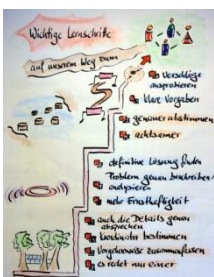 Wichtige Lernschritte
auf unserem Weg zum
Vorschläge
ansprobieren
klare Vorgaben
genauer abstimmen
achtsamer
definitive Lösung finden
Problem genau beschreiben/
analysieren
mehr Ernsthaftigkeit
auch die Details genau
absprechen
Koordinator bestimmen
Vorgehensweise zusammenfassen
es redet nur einer